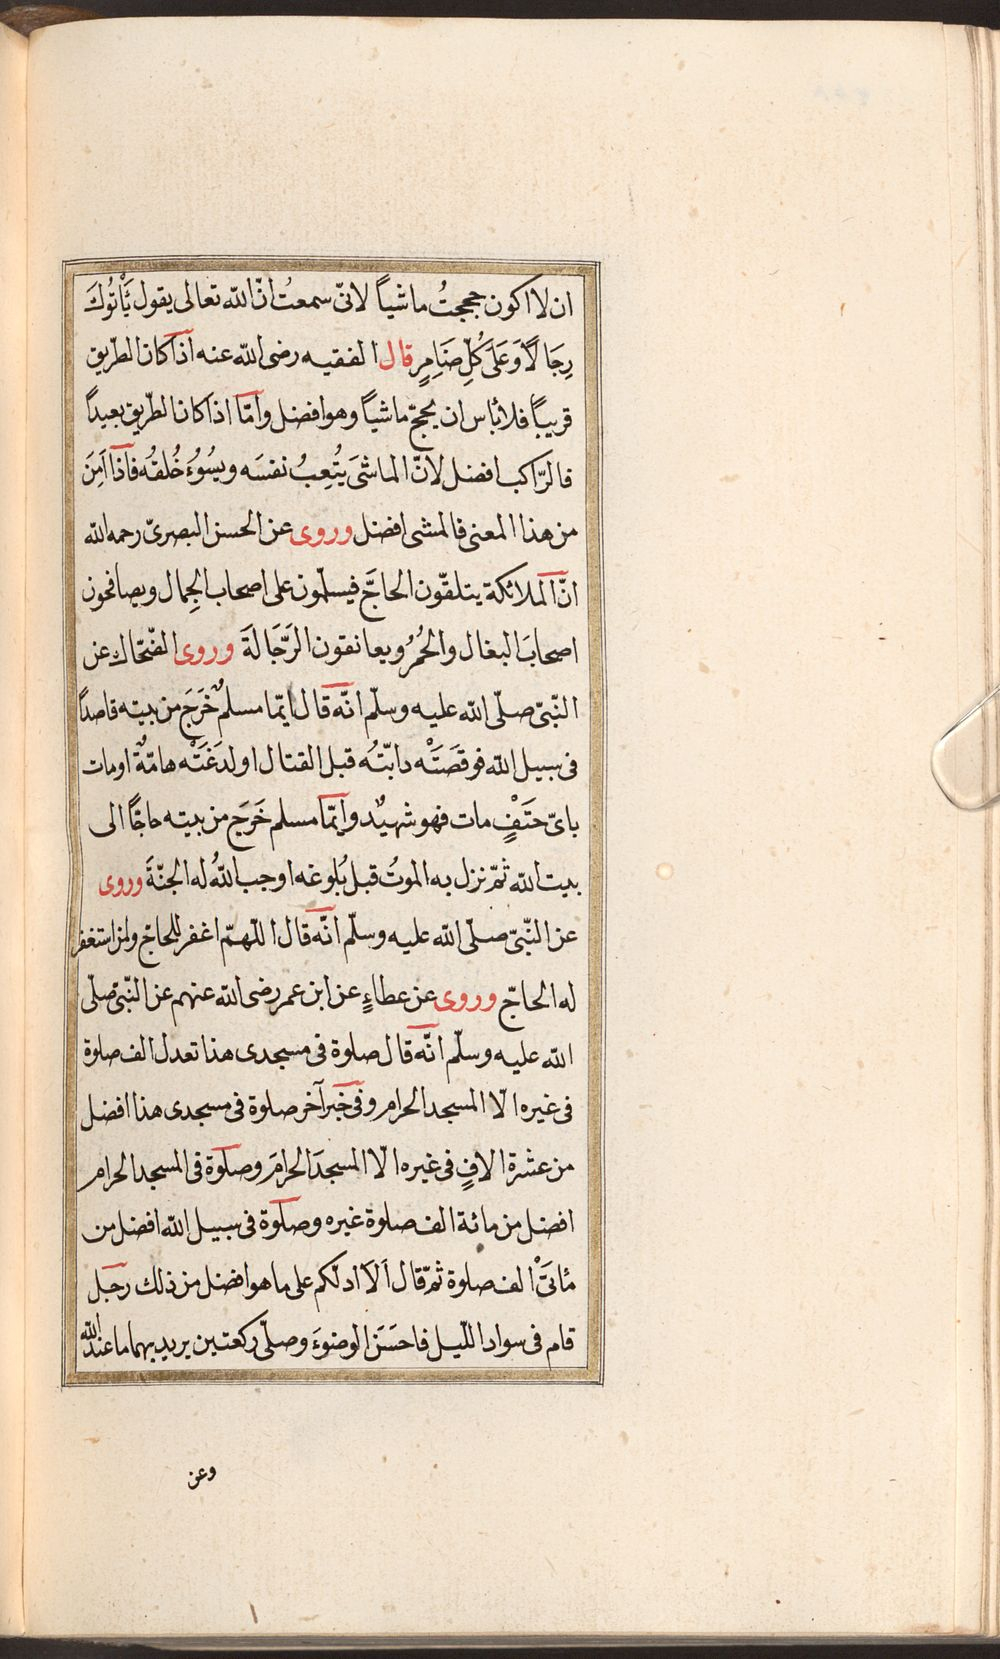 ان لا اكون حججتُ ماشياً لانّى سمعتُ انّ الله تعالى يقول يَأْتُوكَ
رِجَالًا وَعَلَى كُلِّ ضَامِرٍ قال الفقيه رضى الله عنه اذا كان الطريق
قريباً فلا بأس ان يحجّ ماشياً وهو افضل وامّا اذا كان الطّريق بعيداً
فالرّاكب افضل لانّ الماشىَ يُتعِبُ نفسَه ويسُوُءُ خُلقُه فاذا اَمِنَ
من هذا المعنى فالمشى افضل وروى عن الحسن البصرىّ رحمه الله
انّ الملائكة يتلقّون الحاجَّ فيسلّمون على اصحاب الجِمال ويصافحون
اصحابَ البغال والحُمُرِ ويعانقون الرَّجَالَةَ وروى الضّحّاك عن
النّبىّ صلّى الله عليه وسلّم انّه قال ايّما مسلمٌ خَرَجَ من بيته قاصداً
فى سبيل الله فوقَصَتْه دابّتُه قبل القتال او لدَغَتْه هامّةٌ او مات
باىّ حَتَفٍ مات فهو شهيدٌ وايّما مسلم خَرَج من بيته حاجّاً الى
بيت الله ثمّ نزل به الموتُ قبل بُلوغه اوجب اللهُ له الجنّةَ وروى
عن النّبىّ صلّى الله عليه وسلّم انّه قال اللّهمّ اغفر للحاجّ ولمن استغفر
له الحاجّ وروى عن عطاءٍ عن ابن عمر رضى الله عنهم عن النّبىّ صلّى
الله عليه وسلّم انّه قال صلوة فى مسجدى هذا تعدل الف صلوة
فى غيره الّا المسجد الحرام وفى خبر آخر صلوة فى مسجدى هذا افضل
من عشرة الافٍ فى غيره الّا المسجدَ الحرامَ وصلوة فى المسجد الحرام
افضل من مائة الف صلوة غيره وصلوة فى سبيل الله افضل من
مأتَىْ الف صلوة ثمّ قال ألا ادلّكم على ما هو افضل من ذلك رجل
قام فى سواد اللّيل فاحسَنَ الوضوءَ وصلّى ركعتين يريد بهما ما عند الله
وعن